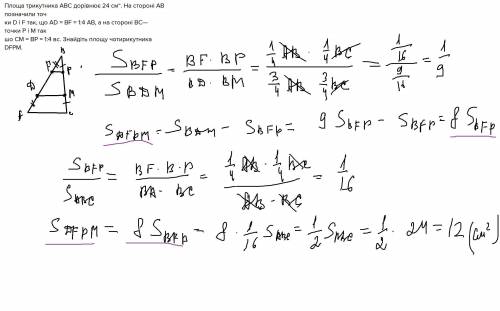 Площа трикутника ABC дорівнює 24 см². На стороні AB
позначили точ
ки D i F так, що AD = BF = 1:4 AB, а на стороні BC—
точки P i M так
шо CM = BP = 1:4 вс. Знайдіть площу чотирикутника
DFPM.
B
F P
D M
A C
S_BFP / S_BDM = BF · BP / BD · BM = 1/4 AB · 1/4 BC / 3/4 AB · 3/4 BC = 1/16 / 9/16 = 1/9
S_DFPM = S_BDM − S_BFP = 9 S_BFP − S_BFP = 8 S_BFP
S_BFP / S_ABC = BF · BP / BA · BC = 1/4 AB · 1/4 BC / AB · BC = 1/16
S_DFPM = 8 S_BFP = 8 · 1/16 S_ABC = 1/2 S_ABC = 1/2 · 24 = 12 (см²)